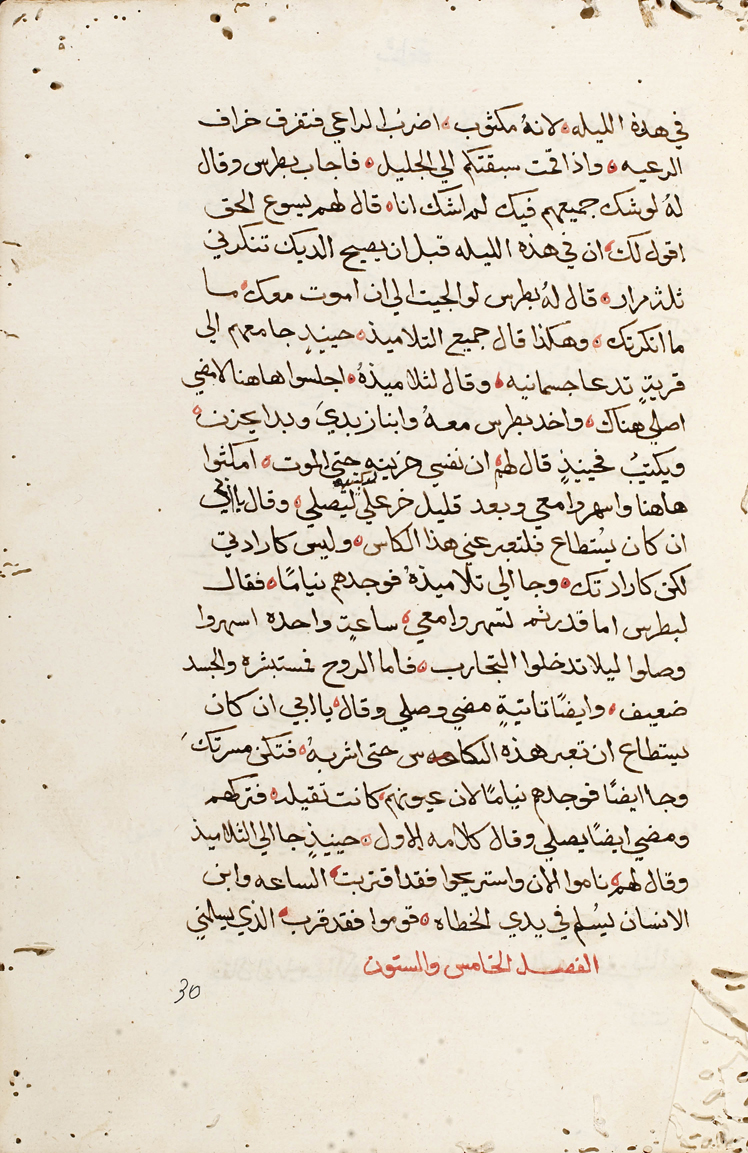 في هده الليله لانهُ مكتوب اضربُ الراعي فتفرق خراف
الرعيه واذا قمت سبقتكم الي الجليل فاجاب بطرس وقال
لهُ لو شك جميعهم فيك لم اشك انا قال لهم يسوع الحق
اقول لك ان في هذه الليله قبل ان يصيح الديك تنكرني
ثلثه مرار قال لهُ بطرس لو الجيت الي ان اموت معك ما
ما انكرتك وهكذا قال جميع التلاميذ حينيدٍ جا معهم الي
قريةٍ تدعا جسمانيه وقال لتلاميذهُ اجلسوا هاهنا لامضي
اصلي هناك واخد بطرس معهُ وابنا زبديَ وبدا يحزن
ويكتيبُ فحينيذٍ قال لهم ان نفسي حزينه حتي الموت امكثوا
هاهنا واسهروا معي وبعد قليل خر علي ليصلي وقال ياابي
ان كان يُستطاع فلتعبر عني هذا الكاس وليس كارادتي
لكن كارادتك وجا الي تلاميذهُ فوجدهم نيامًا فقال
لبطرس اما قدرتم تسهروا معي ساعةٍ واحده اسهروا
وصلوا ليلا تدخلوا التجارب فاما الروح فمستبشره والجسد
ضعيف وايضًا تانيةٍ مضي وصلي وقال ياابي ان كان
يستطاع ان تعبر هذه الكاس حتي اشربهُ فتكن مسرتك
وجا ايضًا فوجدهم نيامًا لان عيونهم كانت تقيله فتركهم
ومضي ايضًا يصلي وقال كلامه الاول حينيذٍ جا الي التلاميذ
وقال لهم ناموا الان واستريحوا فقد اقتربت الساعه وابن
الانسان يُسلم في يدي الخطاه قوموا فقد قرب الذي يسلمني
الفصل الخامس والستون
30